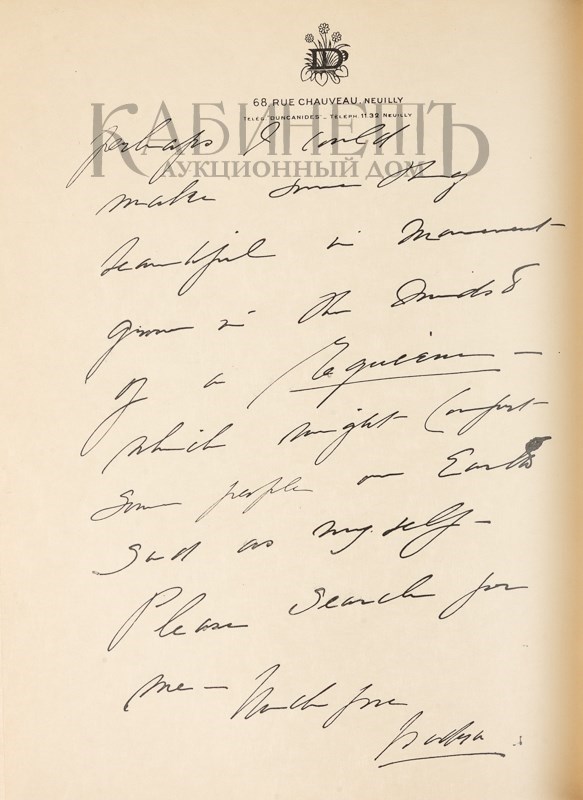 D
68, RUE CHAUVEAU, NEUILLY
TELEG. "DUNCANIDES" _ TELEPH. 11.32 NEUILLY
КАБИНЕТЪ
АУКЦИОННЫЙ ДОМ
perhaps I could
make some thing
beautiful in movement
given in the midst
of a Requiem –
which might comfort
Some people on Earth
Sad as my self –
Please search for
me – Much love
Isadora